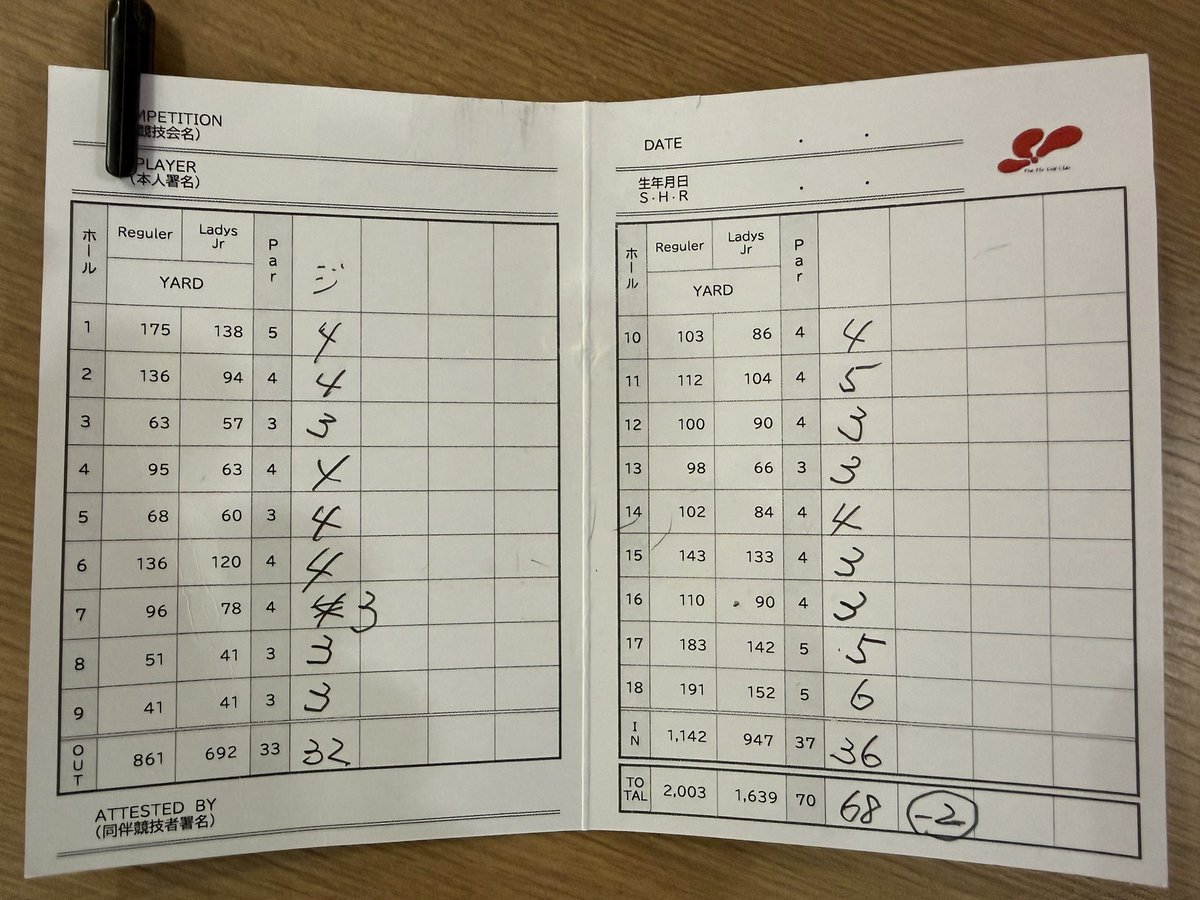 MPETITION
競技会名）
PLAYER
（本人署名）
ホール Reguler Ladys Jr Par ジ
YARD
1 175 138 5 4
2 136 94 4 4
3 63 57 3 3
4 95 63 4 4
5 68 60 3 4
6 136 120 4 4
7 96 78 4 3
8 51 41 3 3
9 41 41 3 3
OUT 861 692 33 32
ATTESTED BY
（同伴競技者署名）
DATE ・ ・
生年月日 ・ ・
S・H・R
ホール Reguler Ladys Jr Par
YARD
10 103 86 4 4
11 112 104 4 5
12 100 90 4 3
13 98 66 3 3
14 102 84 4 4
15 143 133 4 3
16 110 90 4 3
17 183 142 5 5
18 191 152 5 6
IN 1,142 947 37 36
TO TAL 2,003 1,639 70 68 -2